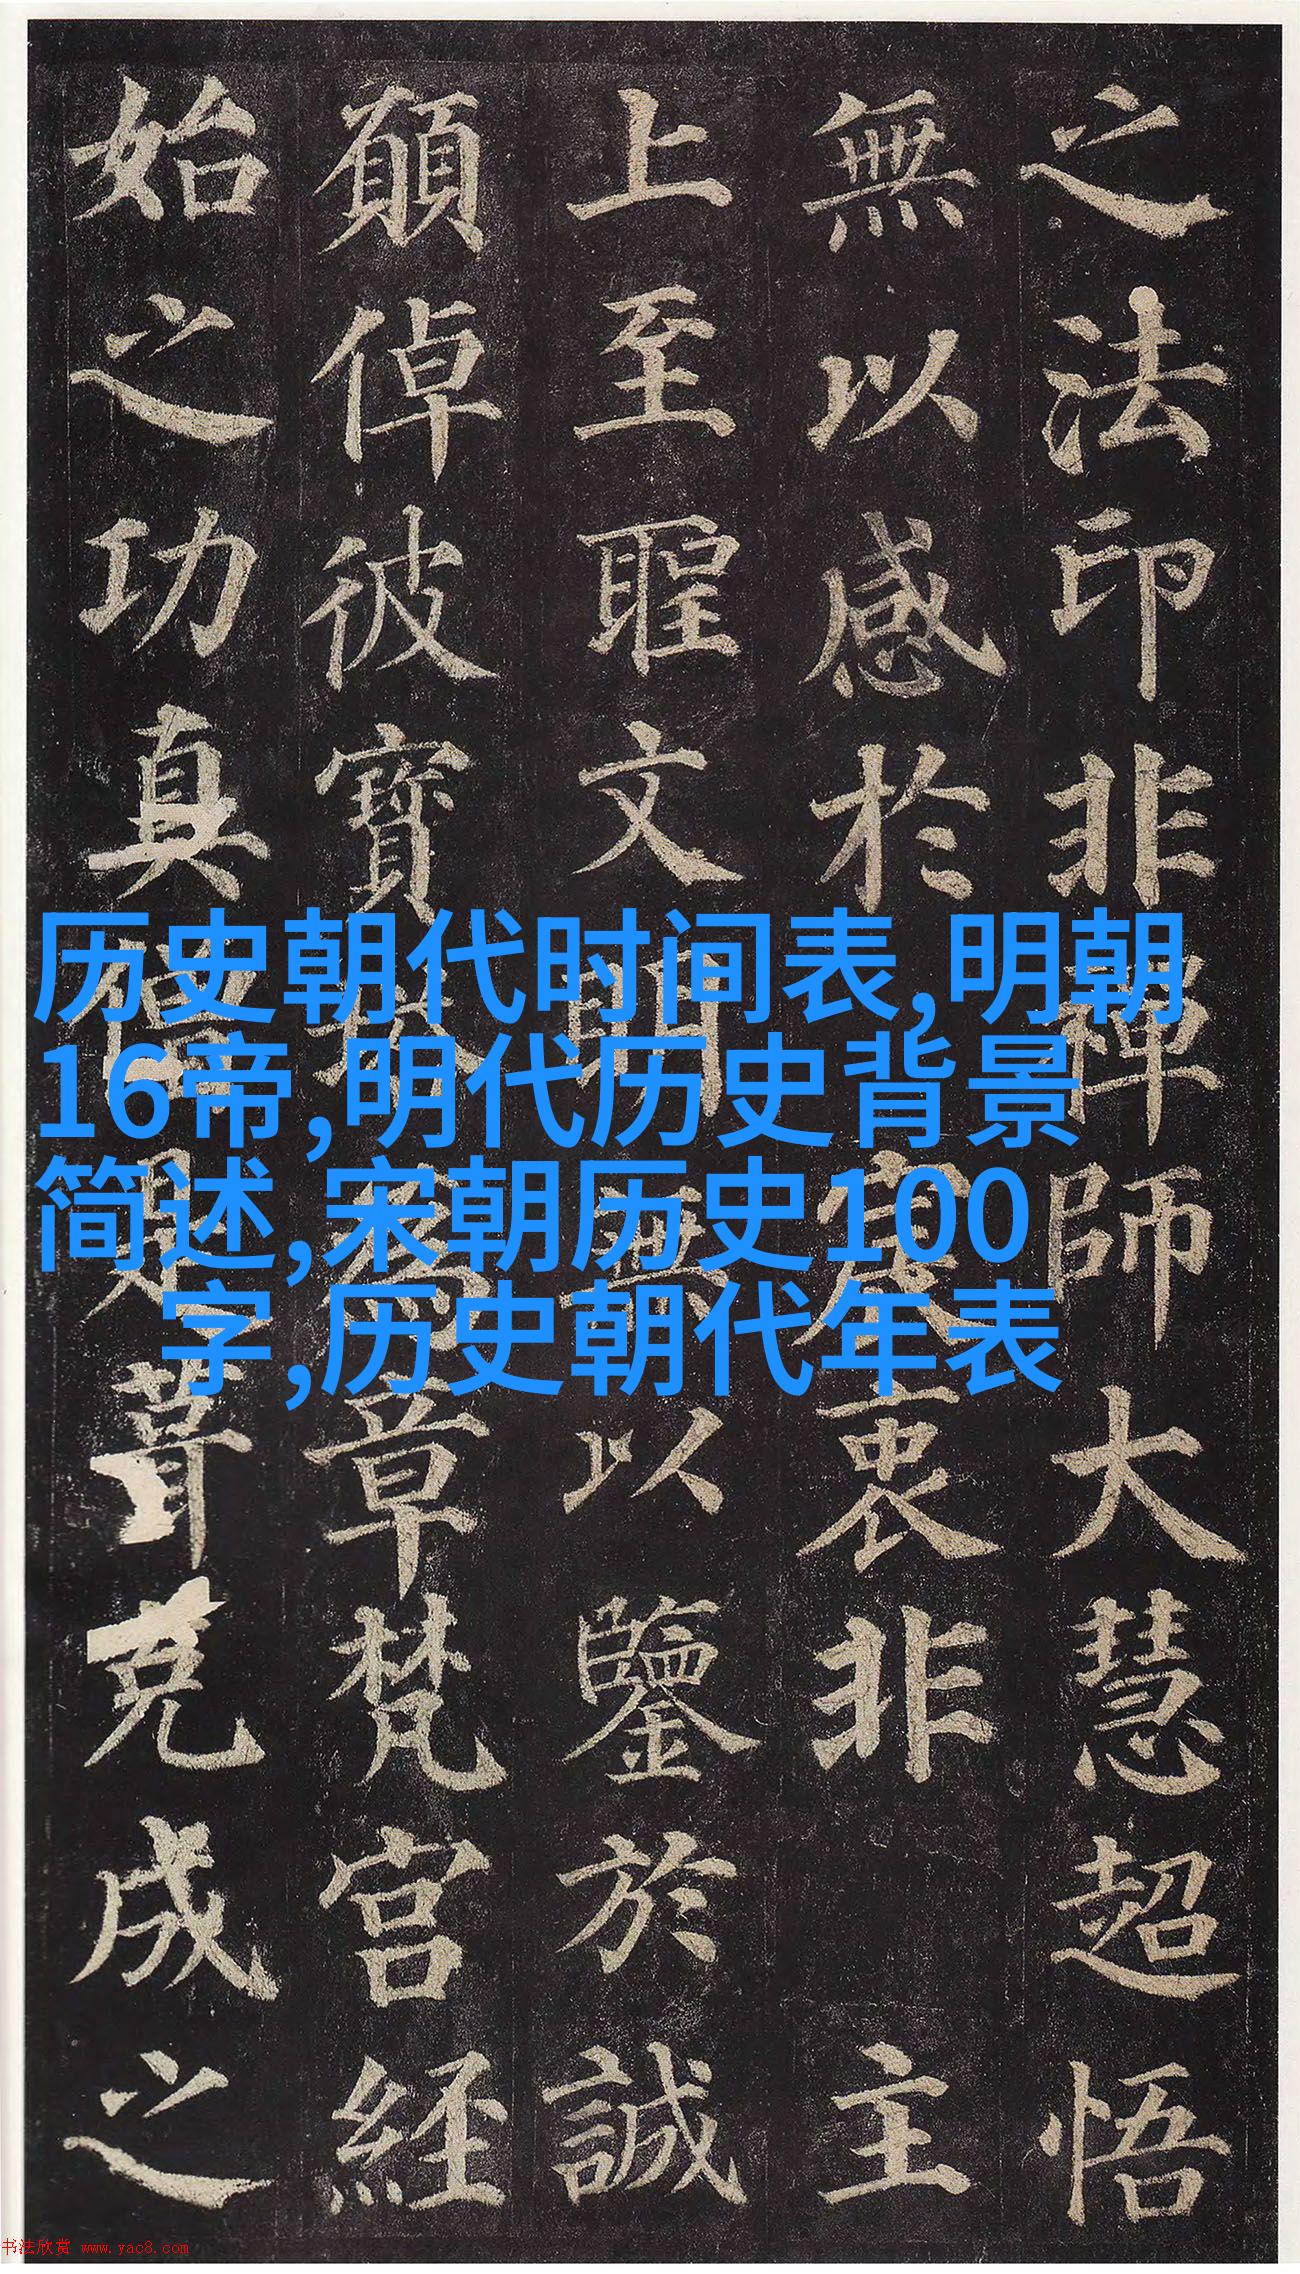 之法印非禪師大慧超悟
無以感於宸衷非主
上至聖文明無以鑒於誠
願倬彼寶刹為章梵宮經
始之功真僧是葺克成之
历史朝代时间表,明朝
16帝,明代历史背景
简述,宋朝历史100
字,历史朝代年表
书法欣赏 www.yac8.com